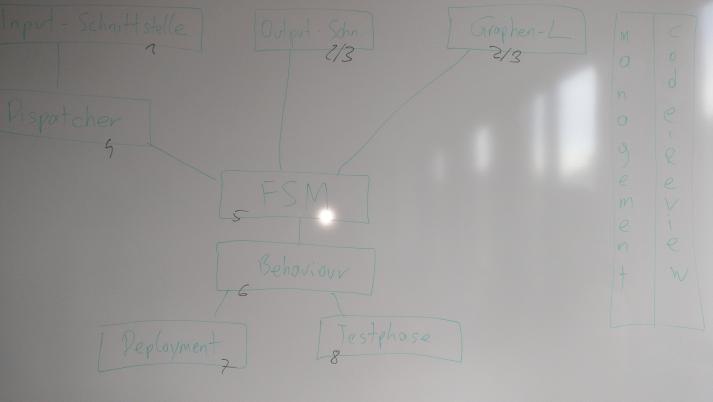 Input-Schnittstelle
1
Output-Schn.
2/3
Graphen-L
2/3
Dispatcher
4
FSM
5
Behaviour
6
Deployment
7
Testphase
8
Management
Codereview